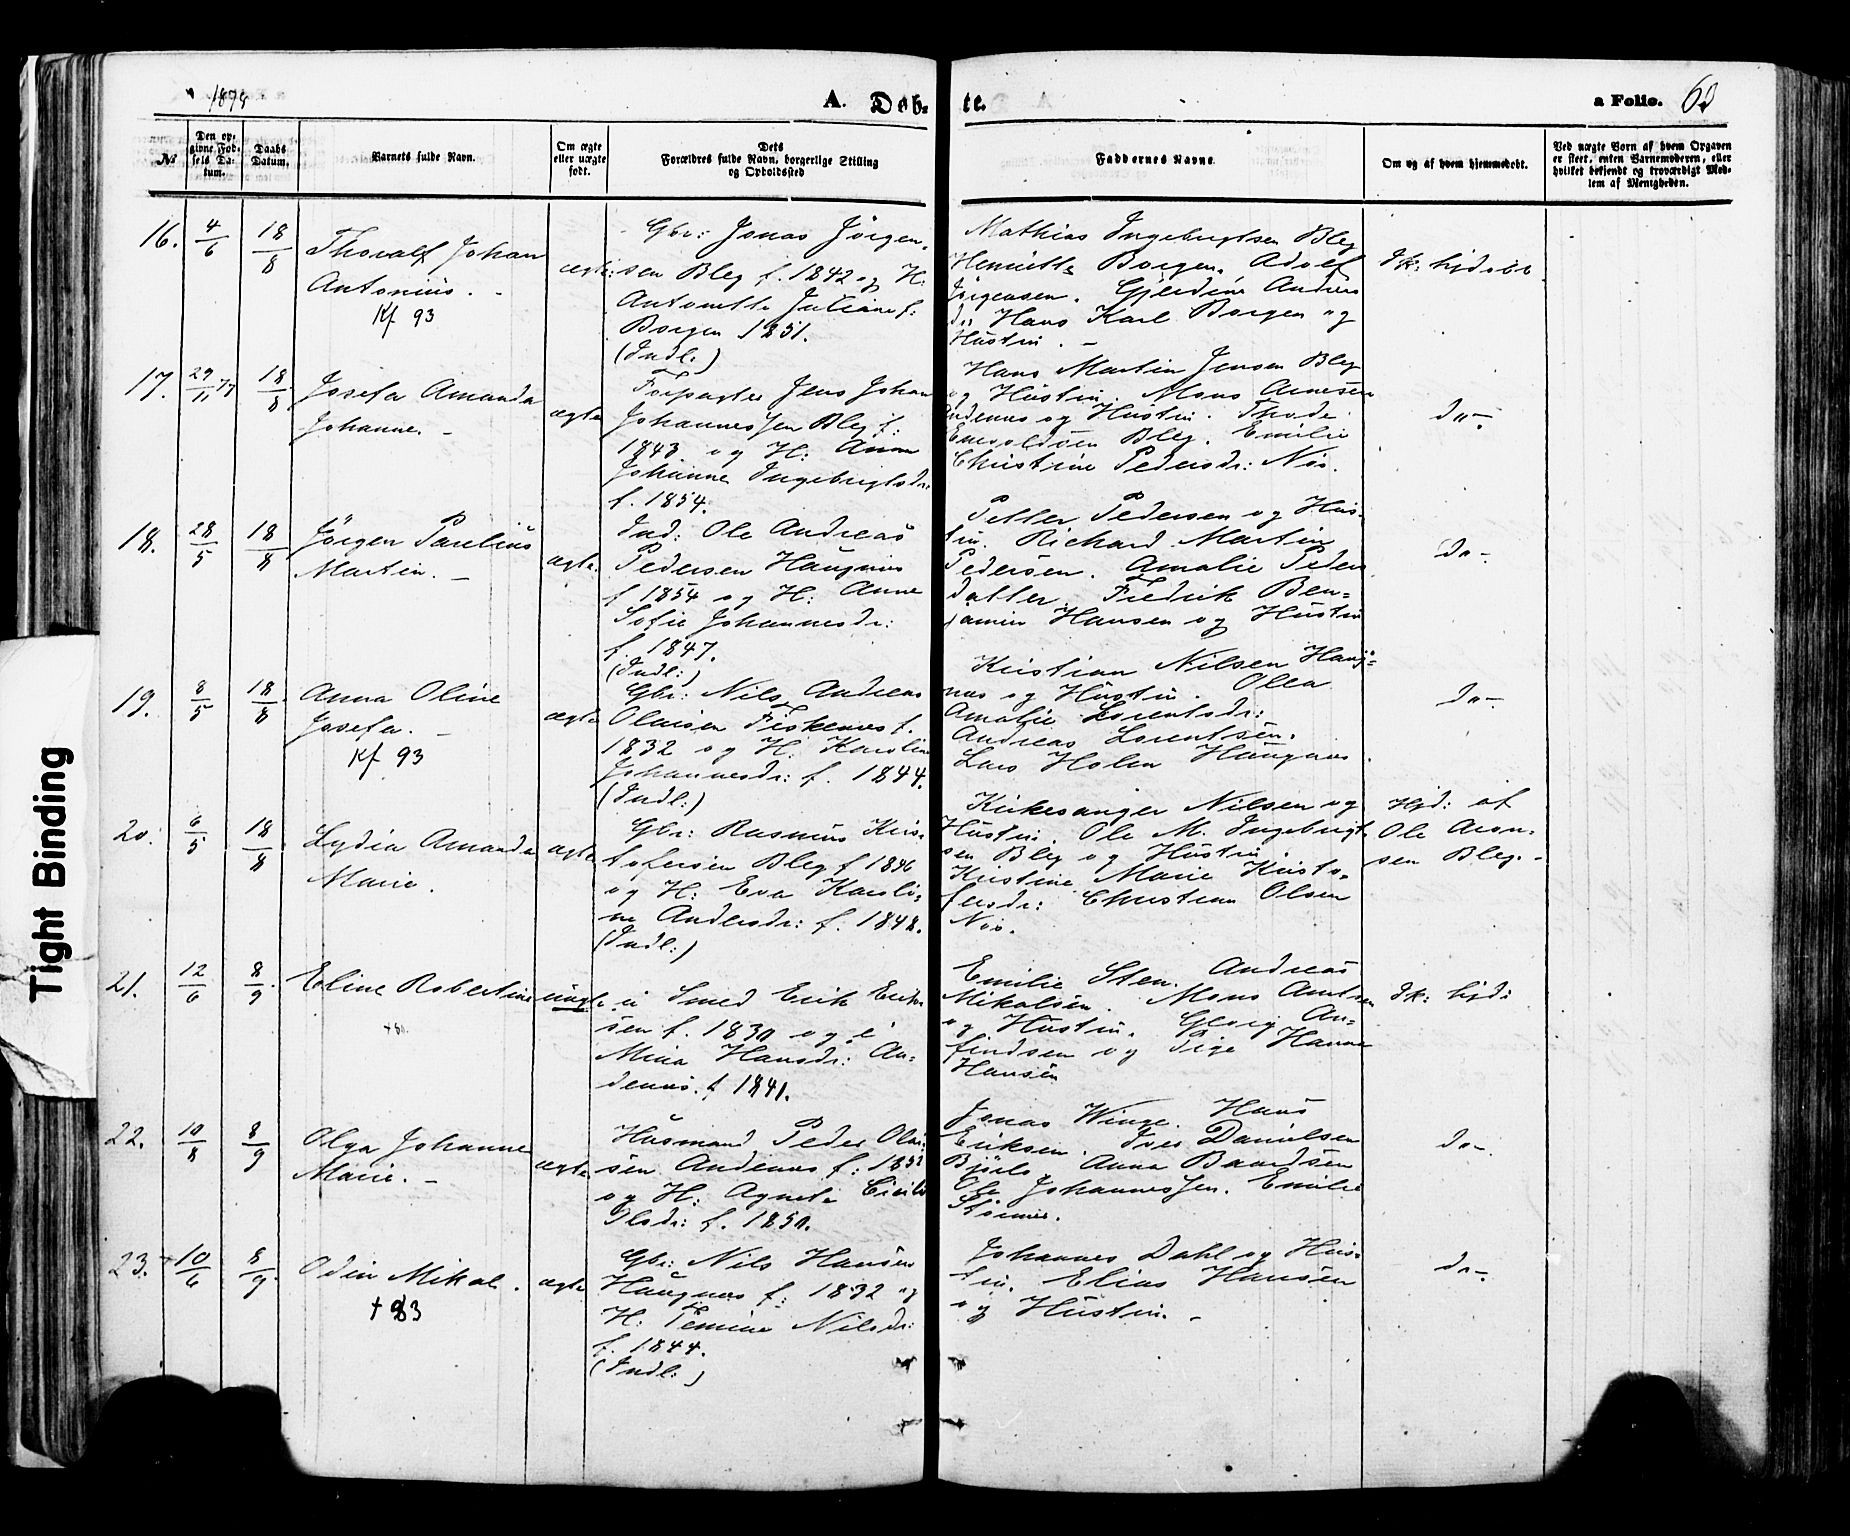 1878
A. Døb-
te.
a Folio. 63
№
Den op-
givne Fød-
sels Da-
tum.
Daabs
Datum.
Barnets fulde Navn.
Om ægte
eller uægte
født.
Dets
Forældres fulde Navn, borgerlige Stilling
og Opholdssted
Faddernes Navne.
Om og af hvem hjemmedøbt.
Ved uægte Børn af hvem Opgaven
er skeet, enten Barnemoderen, eller
hvilket bekjendt og troværdigt Med-
lem af Menigheden.
16.
4/6
18/8
Thoralf Johan
Antonius.
Kf 93
ægte
Gbr: Jonas Jörgen-
sen Bleg f. 1842 og H:
Antonette Juliane f:
Borgen 1851.
(Indl.)
Mathias Ingebrigtsen Bleg
Henriette Borgen. Adolf
Jörgensen. Gjerdine Anders
dr: Hans Karl Borgen og
Hustru.
Ik: hjdöbt
17.
29/11 77
18/8
Josefa Amanda
Johanne.
ægte
Forpagter Jens Johan
Johannessen Bleg f:
1843 og H: Anna
Johanne Ingebrigtsdr:
f. 1854.
Hans Martin Jensen Bleg
og Hustru. Mons Arnesen
Andenes og Hustru. Thode
Enevoldsen Bleg. Emilie
Christine Pedersdr: Nös.
do-
18.
28/5
18/8
Jörgen Parelius
Martin.
ægte
Ind: Ole Andreas
Pedersen Haugnes
f 1854 og H: Anne
Sofie Johannesdr:
f. 1847.
(Indl:)
Petter Pedersen og Hus-
tru. Richard Martin
Pedersen. Amalie Peders
datter. Fredrik Ben-
jamin Hansen og Hustru
do-
19.
8/5
18/8
Anna Oline
Josefa.
Kf 93
ægte
Gbr: Nils Andreas
Olaisen Fiskenes f.
1832 og H. Karoline
Johannesdr: f. 1844.
(Indl:)
Kristian Nilsen Haug-
nes og Hustru. Olea
Amalie Lorentsdr:
Andreas Lorentsen.
Lars Holen Haugnes.
do-
20.
6/5
18/8
Lydia Amanda
Marie.
ægte
Gbr: Rasmus Kris-
tofersen Bleg f 1846
og H: Eva Karoli-
ne Andersdr: f. 1848.
(Indl:)
Kirkesanger Nilsen og
Hustru. Ole M. Ingebrigt-
sen Bleg og Hustru.
Kirstine Marie Kristo-
fersdr: Christian Olsen
Nös.
Hjd: af
Ole Aron-
sen Bleg.
21.
12/6
8/9
Eline Robertine
uægte
u: Smed Erik Erik-
sen f. 1830 og p:
Mina Hansdr: An-
denes. f 1841.
Emilie Sten. Andreas
Mikalsen. Mons Arntsen
og Hustru. Georg An-
findsen og Pige Hanna
Hansen
Ik: hjd:
22.
10/8
8/9
Olga Johanne
Marie.
ægte
Husmand Peder Olai-
sen Andenes f: 1852
og H: Agneta Cicilie
Olsdr: f. 1850.
Jonas Winge. Hans
Eriksen. Iver Danielsen
Anna Baardsen
Ole Johannessen. Emilie
do-
23.
10/6
8/9
Odin Mikal.
+ 83
ægte
Gbr: Nils Hansen
Haugnes f: 1832 og
H: Femine Nilsdr:
f. 1844.
(Indl:)
Johannes Dahl og Hus-
tru. Elias Hansen
og Hustru.
do-
Tight Binding